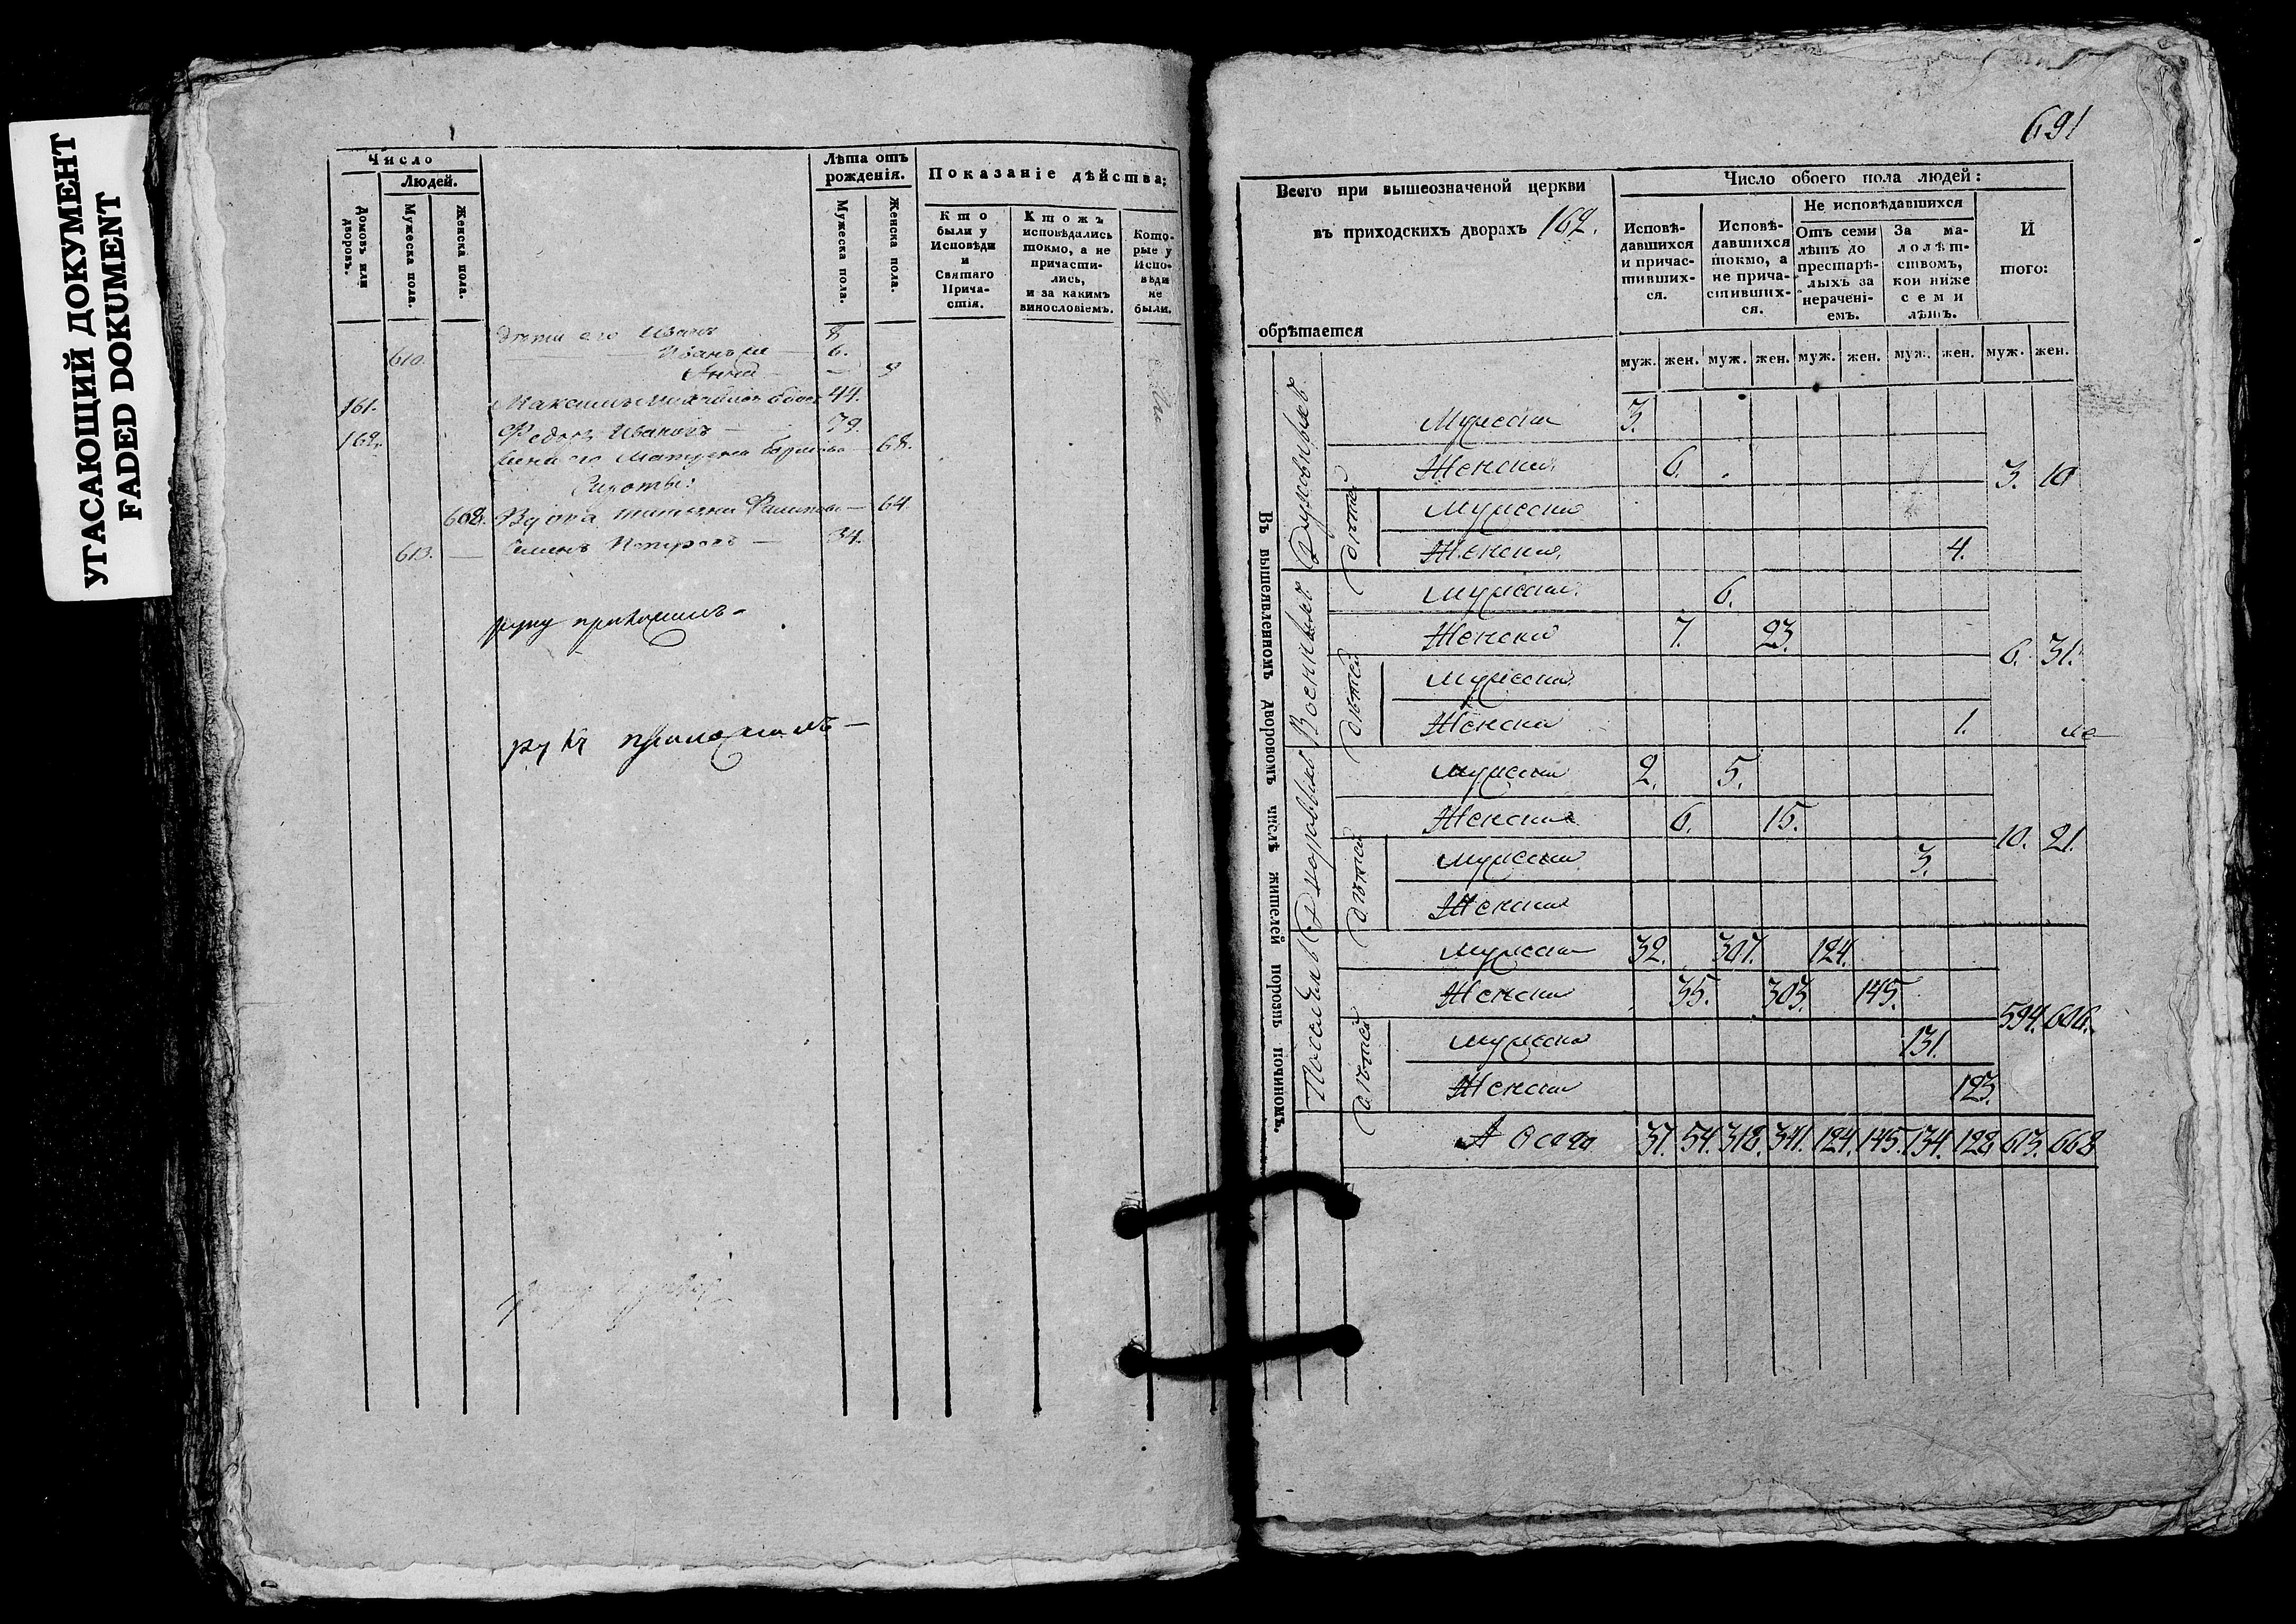 УГАСАЮЩИЙ ДОКУМЕНТ
FADED DOKUMENT
Число
Людей.
Домовъ или дворовъ.
Мужеска пола.
Женска пола.
Лѣта отъ рожденія.
Мужеска пола.
Женска пола.
Показаніе дѣйства;
Кто были у Исповѣди и Святаго Причастія.
Ктожъ исповѣдались токмо, а не причастились, и за какимъ винословіемъ.
Которые у Исповѣди не были.
дѣти его Иванъ 8
610. Иванъ же 6.
Анна — 9
161. Максимъ 44.
162. Федоръ Ивановъ — 79.
Жена его 68.
Сироты:
668. Вдова Филипова — 64.
613. — Семенъ Петровъ — 34.
руку приложилъ —
руку приложилъ —
691
Всего при вышеозначеной церкви
въ приходскихъ дворахъ 162.
обрѣтается
Число обоего пола людей:
Исповѣдавшихся и причастившихся.
Исповѣдавшихся токмо, а не причастившихся.
Не исповѣдавшихся
Отъ семи лѣтъ до престарѣлыхъ за нерачені- емъ.
За малолѣтствомъ, кои ниже семи лѣтъ.
И того:
муж. жен. муж. жен. муж. жен. муж. жен. муж. жен.
Въ вышеявленномъ дворовомъ числѣ жителей порознь починномъ.
Духовныхъ
Мужеска 3.
Женска 6.
3. 10
дѣтей
Мужеска
Женска 4.
Военныхъ
Мужеска 6.
Женска 7. 23.
6. 31.
дѣтей
Мужеска
Женска 1.
Дворовыхъ
Мужеска 2. 5.
Женска 6. 15.
10. 21.
дѣтей
Мужеска 3.
Женска
Мужеска 32. 307. 124.
Женска 35. 303. 145.
594. 606.
дѣтей
Мужеска 131.
Женска 123.
А всего 37. 54. 318. 341. 124. 145. 134. 128. 613. 668